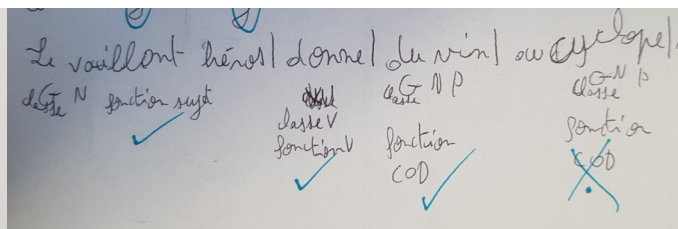 Le vaillant héros | donne | du vin | au cyclope |.
classe GN fonction sujet classe V classe GNP classe GNP
fonction V fonction fonction
COD COD